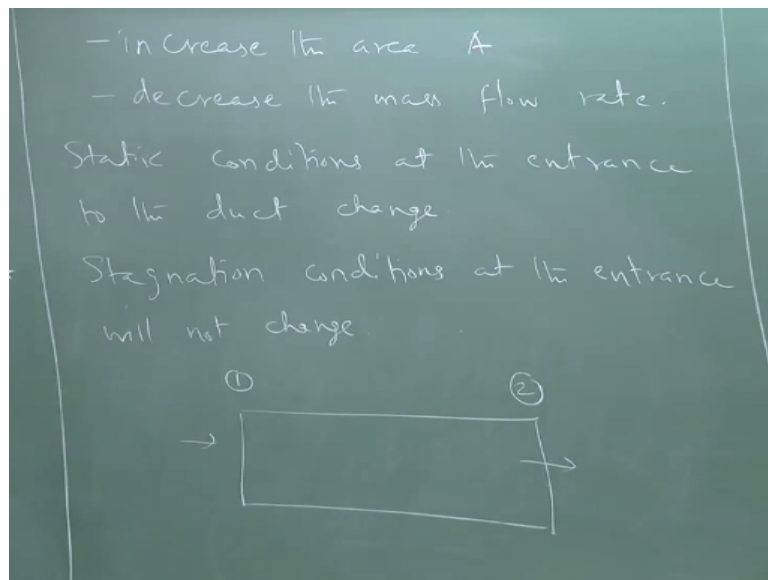 - increase the area A
- decrease the mass flow rate.
Static conditions at the entrance
to the duct change.
Stagnation conditions at the entrance
will not change.
① ②